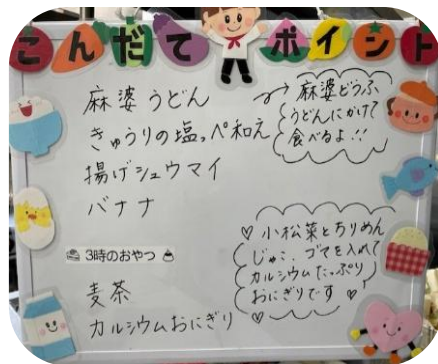 こんだてポイント
麻婆うどん
きゅうりの塩っぺ和え
揚げシュウマイ
バナナ
麻婆どうふ
うどんにかけて
食べるよ!!
3時のおやつ
麦茶
カルシウムおにぎり
♡小松菜とちりめん
じゃこ、ゴマを入れて
カルシウムたっぷり
おにぎりです♡